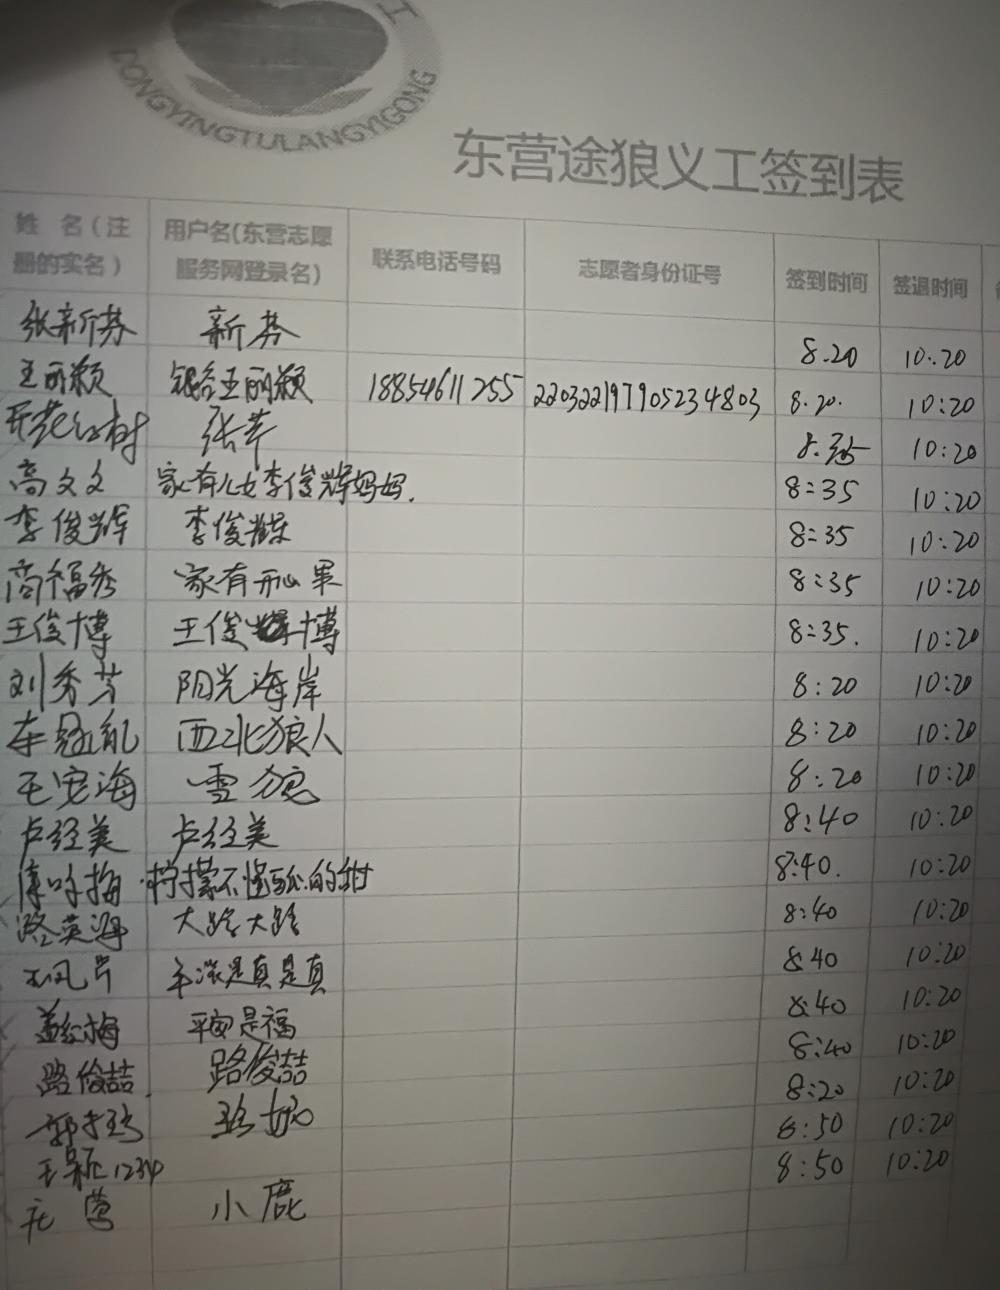 工
DONGYINGTULANGYIGONG
东营途狼义工签到表
姓 名（注册的实名） 用户名(东营志愿服务网登录名) 联系电话号码 志愿者身份证号 签到时间 签退时间
张新芬 新芬 8.20 10:20
王丽颖 银谷王丽颖 18854611755 220322197905234803 8.20. 10:20
开花红树 张芹 10:20
高文文 家有儿女李俊辉妈妈. 8:35 10:20
李俊辉 李俊辉 8:35 10:20
商福秀 家有开心果 8:35 10:20
王俊博 王俊博 8:35. 10:20
刘秀芳 阳光海岸 8:20 10:20
西北狼人 8:20 10:20
王宪海 雪狼 8:20 10:20
卢经美 卢经美 8:40 10:20
柠檬不懂的甜 8:40. 10:20
路英海 大路大路 8:40 10:20
是真是真 8:40 10:20
盖红梅 平安是福 8:40 10:20
路俊喆. 路俊喆 8:40 10:20
8:20 10:20
1234 8:50 10:20
小鹿 8:50 10:20